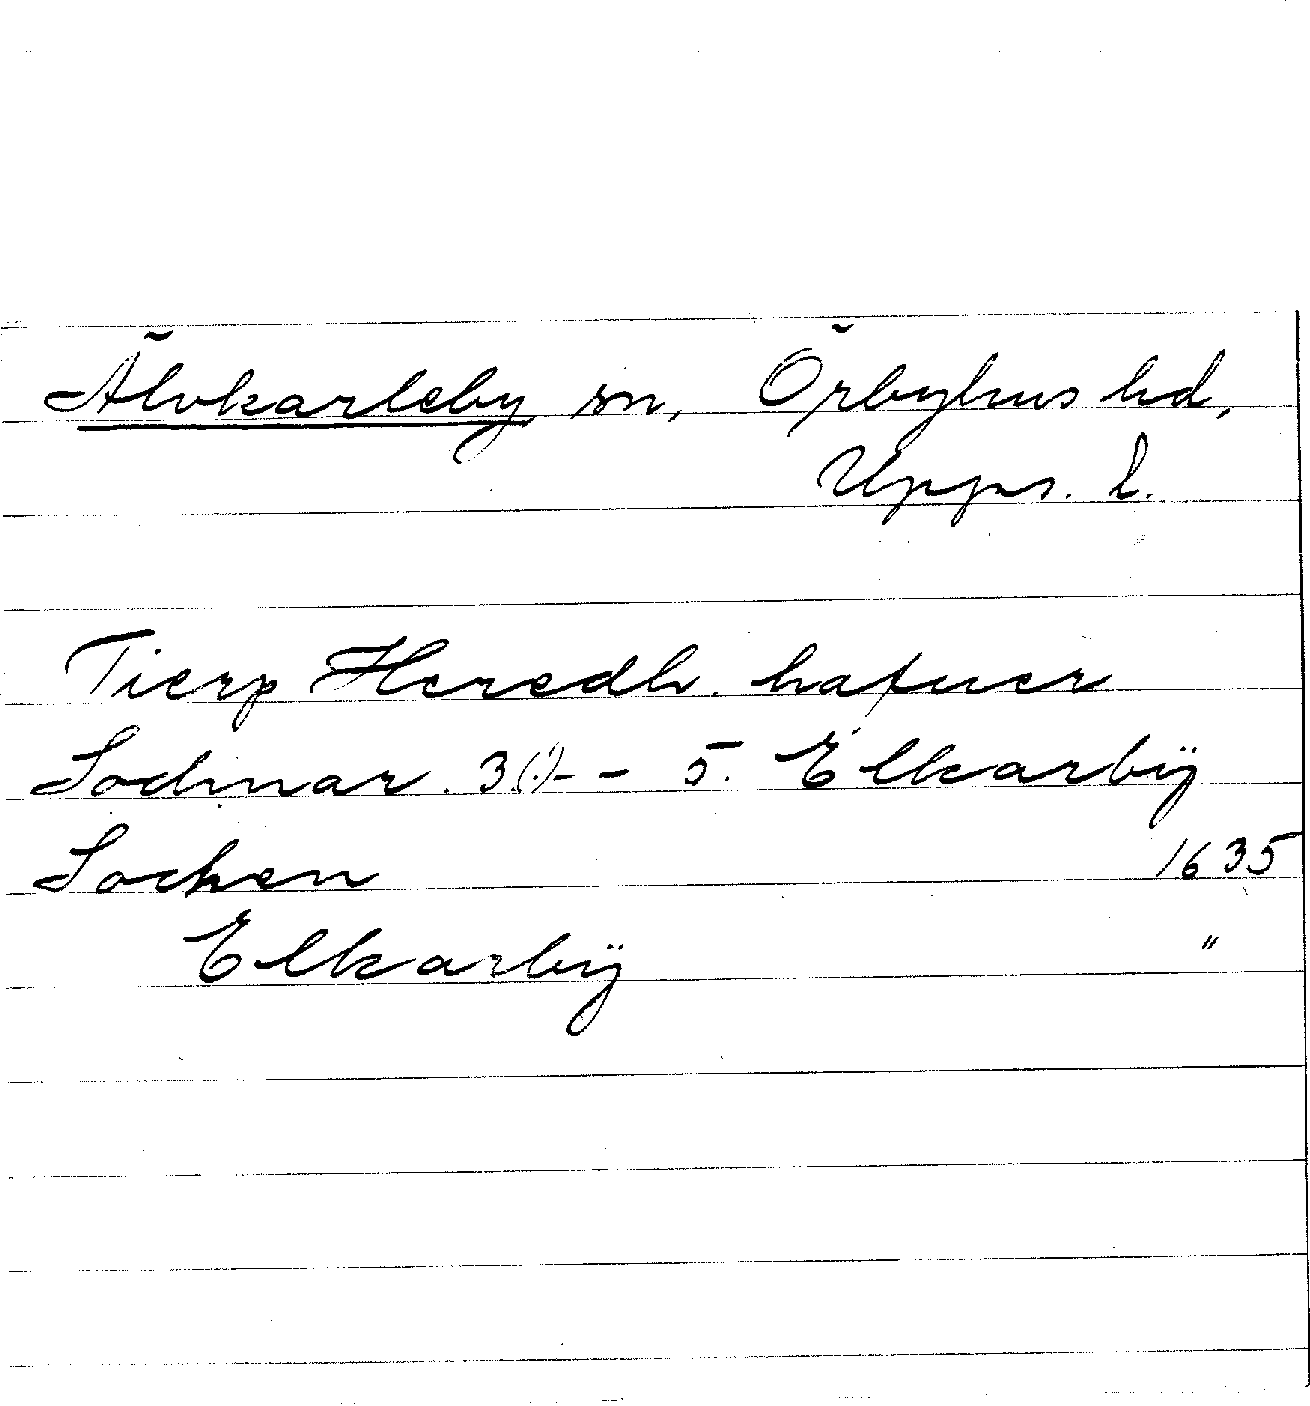 Älvkarleby sn, Örbyhus hd,
Upps. l.
Tierp Heredh. hafuer
Sochnar. 3(:)- - 5. Elkarbÿ
Sochen 1635
Elkarbÿ "